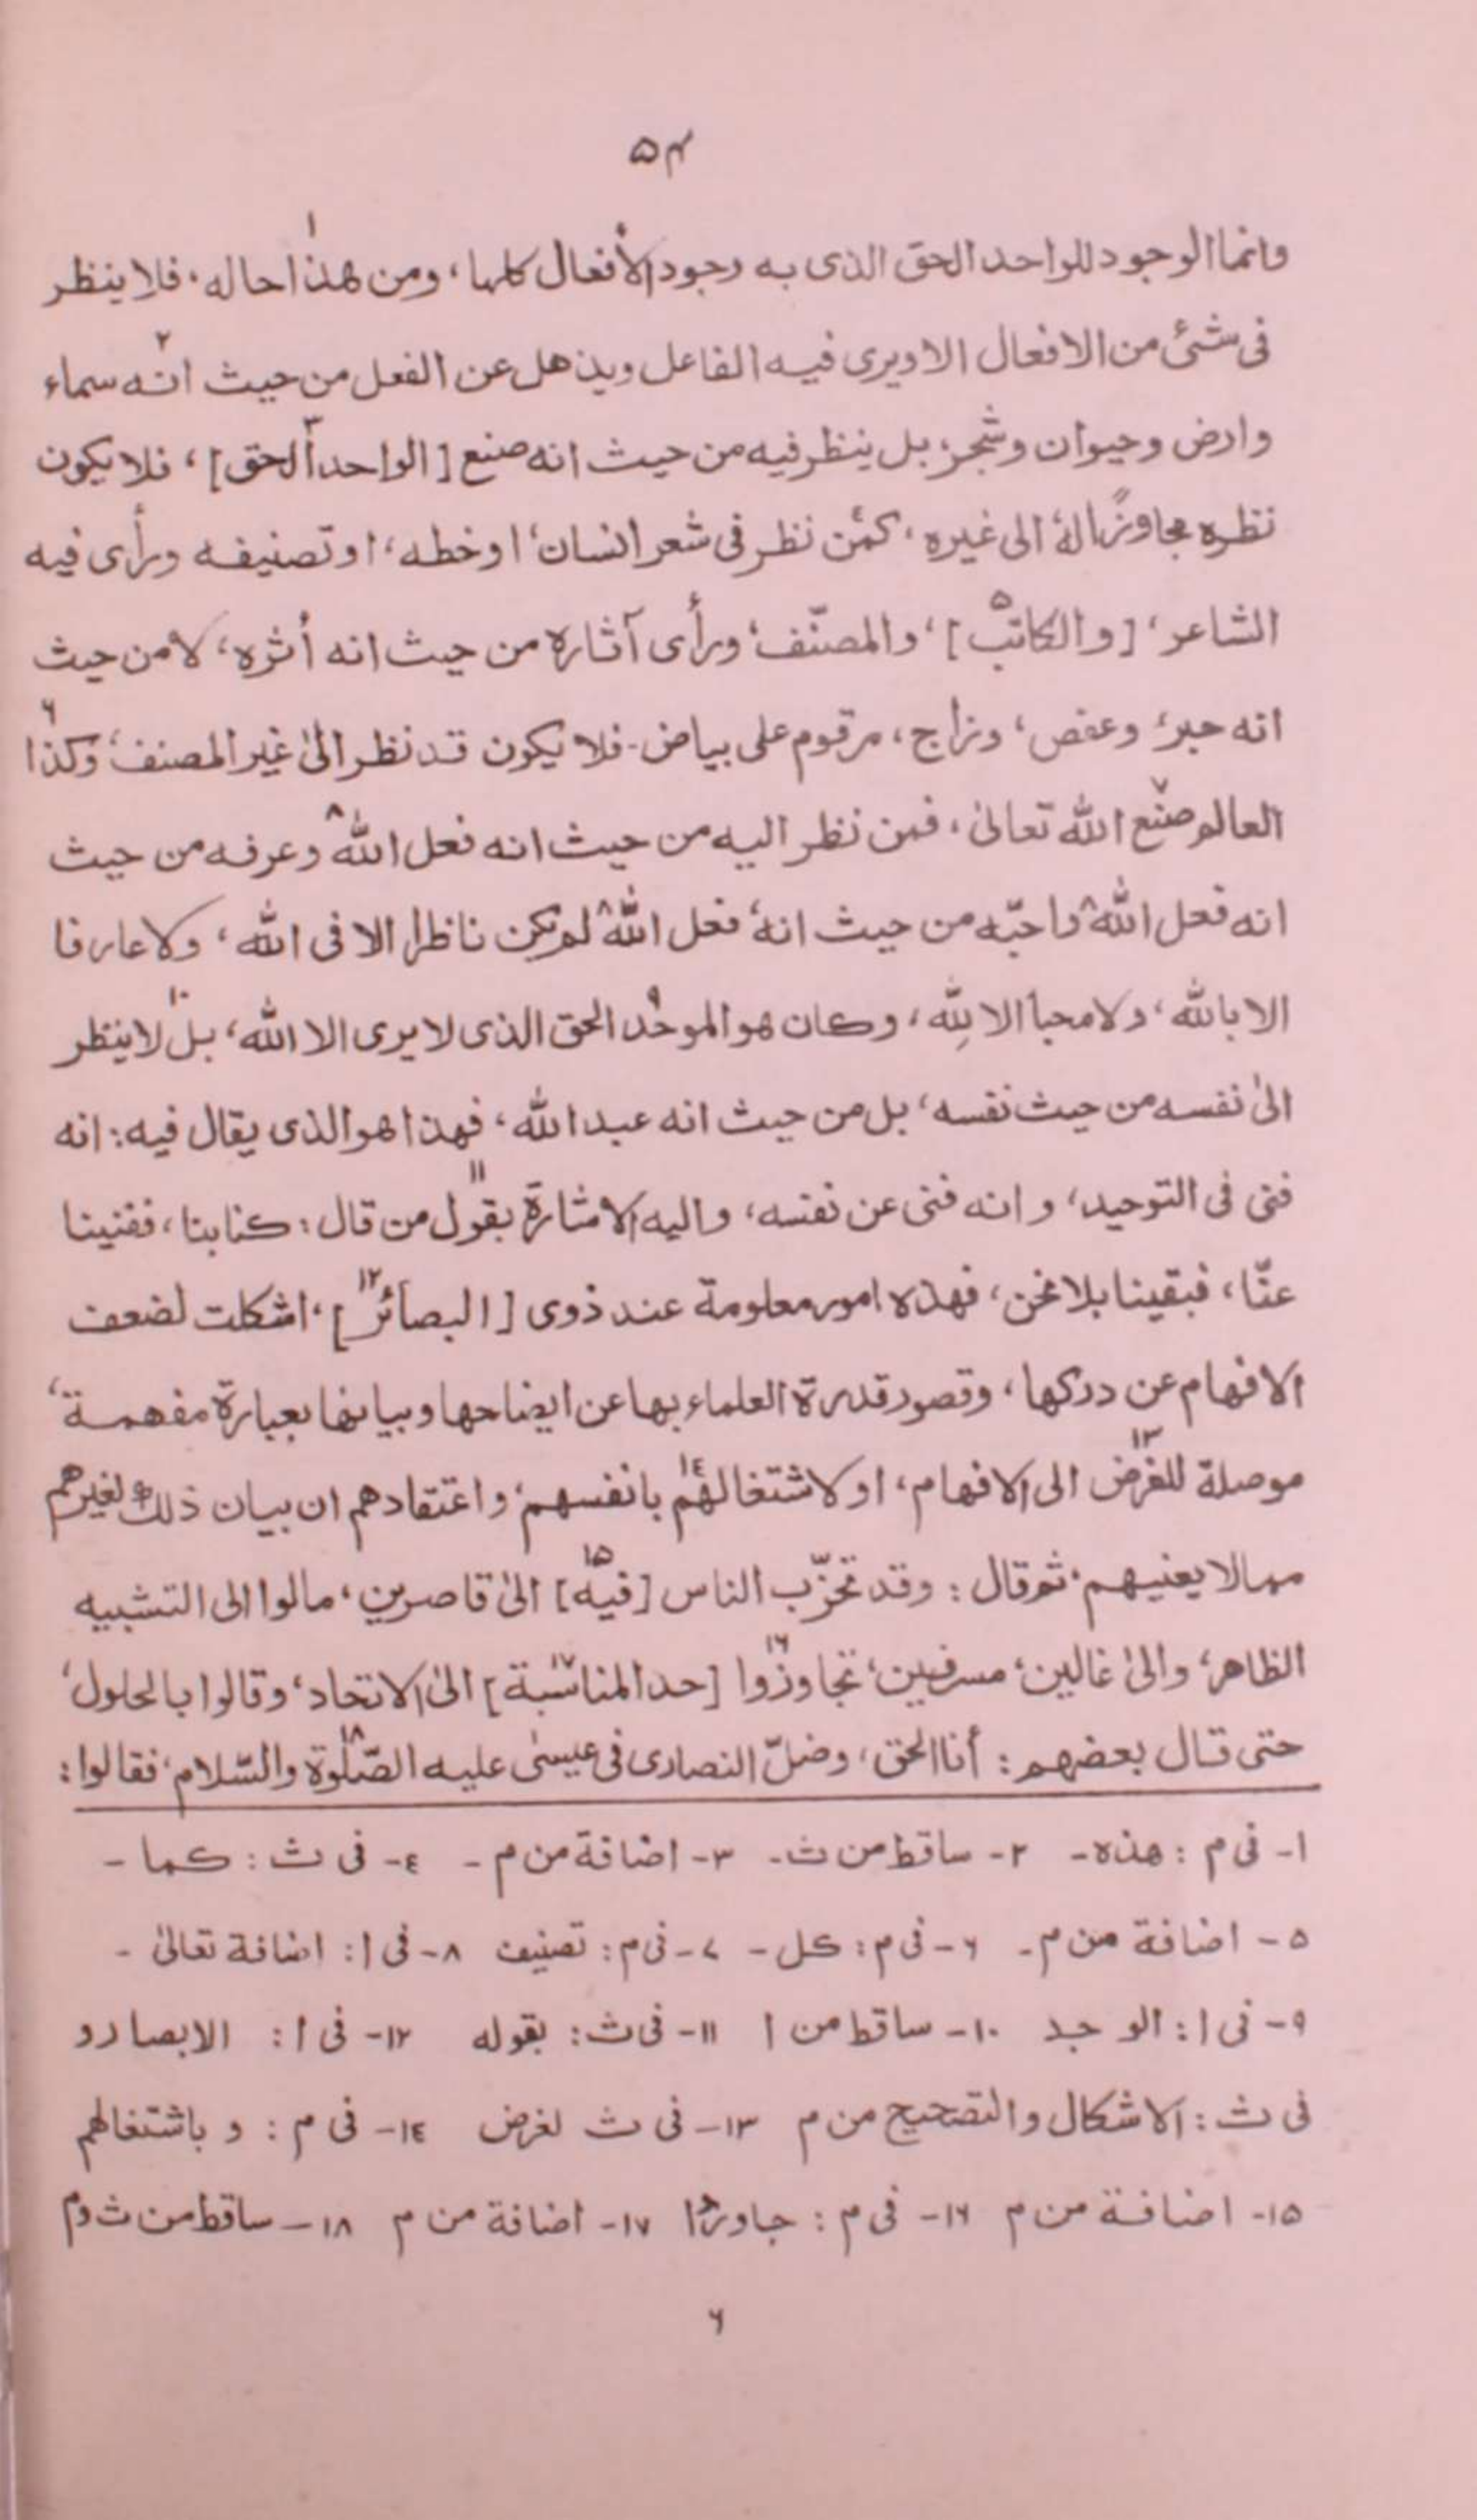 ۵۴
وانما الوجود للواحد الحق الذى به وجود الأفعال كلها، ومن هذا۱ حاله، فلا ينظر
فى شئ من الافعال الا ويرى فيه الفاعل ويذهل عن الفعل من حيث انه۲ سماء
وارض وحيوان وشجر، بل ينظر فيه من حيث انه صنع [الواحد الحق]۳، فلا يكون
نظره مجاوزاً له الى غيره، كمن٤ نظر فى شعر انسان، او خطه، او تصنيفه ورأى فيه
الشاعر، [والكاتب]۵، والمصنّف، ورأى آثاره من حيث انه أثره، لا من حيث
انه حبر، وعفص، وزاج، مرقوم على بياض- فلا يكون قد نظر الىٰ غير المصنف، وكذا۶
العالم صنع۷ الله تعالىٰ، فمن نظر اليه من حيث انه فعل الله۸ وعرفه من حيث
انه فعل الله۸ واحبّه من حيث انه، فعل الله۸ لم يكن ناظرا الا فى الله، ولا عارفا
الا بالله، ولا محباً الا لِلّه، وكان هو الموحد۹ الحق الذى لا يرى الا الله، بل۱۰ لا ينظر
الىٰ نفسه من حيث نفسه، بل من حيث انه عبد الله، فهذا هو الذى يقال فيه: انه
فنى فى التوحيد، وانه فنى عن نفسه، واليه الاشارة بقول۱۱ من قال: كنا بنا، ففنينا
عنّا، فبقينا بلا نحن، فهذه امور معلومة عند ذوى [البصائر۱۲]، اشكلت لضعف
الافهام عن دركها، وقصور قدرة العلماء بها عن ايضاحها وبيانها بعبارة مفهمة،
موصلة للغرض۱۳ الى الافهام، او لاشتغالهم۱٤ بانفسهم، واعتقادهم ان بيان ذلك لغيرهم
مما لا يعنيهم، ثم قال: وقد تحزّب الناس [فيه۱۵] الىٰ قاصرين، مالوا الى التشبيه
الظاهر، والىٰ غالين، مسرفين، تجاوزوا۱۶ [حد المناسبة۱۷] الى الاتحاد، وقالوا بالحلول،
حتى قال بعضهم: أنا الحق، وضلّ النصارى فى عيسىٰ عليه الصّلوة۱۸ والسّلام، فقالوا:
۱- فى م: هذه- ۲- ساقط من ث- ۳- اضافة من م- ٤- فى ث: كما-
۵- اضافة من م- ۶- فى م: كل- ۷- فى م: تصنيف ۸- فى ا: اضافة تعالىٰ-
۹- فى ا: الوجد ۱۰- ساقط من ا ۱۱- فى ث: بقوله ۱۲- فى ا: الابصار و
فى ث: الاشكال والتصحيح من م ۱۳- فى ث لغرض ۱٤- فى م: و باشتغالهم
۱۵- اضافة من م ۱۶- فى م: جاوزوا ۱۷- اضافة من م ۱۸- ساقط من ث وم
۶